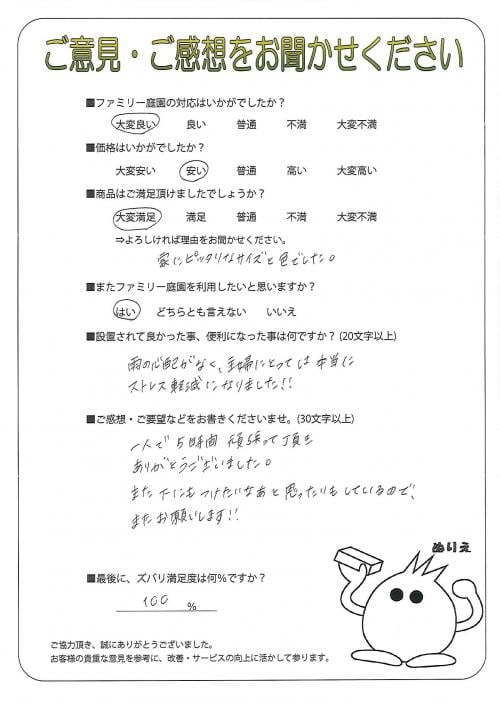 ご意見・ご感想をお聞かせください
■ファミリー庭園の対応はいかがでしたか？
大変良い 良い 普通 不満 大変不満
■価格はいかがでしたか？
大変安い 安い 普通 高い 大変高い
■商品はご満足頂けましたでしょうか？
大変満足 満足 普通 不満 大変不満
⇒よろしければ理由をお聞かせください。
家にピッタリなサイズと色でした。
■またファミリー庭園を利用したいと思いますか？
はい どちらとも言えない いいえ
■設置されて良かった事、便利になった事は何ですか？(20文字以上)
雨の心配がなく、主婦にとっては本当に
ストレス軽減になりました!!
■ご感想・ご要望などをお書きくださいませ。(30文字以上)
一人で5時間 頑張って頂き
ありがとうございました。
また下にもつけたいなぁと思ったりもしているので、
またお願いします!!
ぬりえ
■最後に、ズバリ満足度は何%ですか？
100 %
ご協力頂き、誠にありがとうございました。
お客様の貴重な意見を参考に、改善・サービスの向上に活かして参ります。